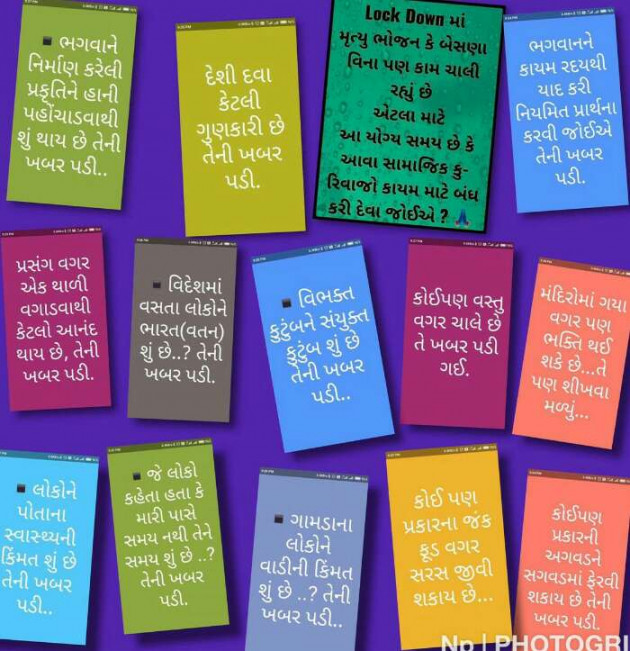 ▪ ભગવાને
નિર્માણ કરેલી
પ્રકૃતિને હાની
પહોંચાડવાથી
શું થાય છે તેની
ખબર પડી..
દેશી દવા
કેટલી
ગુણકારી છે
તેની ખબર
પડી.
Lock Down માં
મૃત્યુ ભોજન કે બેસણા
વિના પણ કામ ચાલી
રહ્યું છે
એટલા માટે
આ યોગ્ય સમય છે કે
આવા સામાજિક કુ-
રિવાજો કાયમ માટે બંધ
કરી દેવા જોઈએ ? 🙏
ભગવાનને
કાયમ રદયથી
યાદ કરી
નિયમિત પ્રાર્થના
કરવી જોઈએ
તેની ખબર
પડી.
પ્રસંગ વગર
એક થાળી
વગાડવાથી
કેટલો આનંદ
થાય છે, તેની
ખબર પડી.
▪ વિદેશમાં
વસતા લોકોને
ભારત(વતન)
શું છે..? તેની
ખબર પડી.
▪ વિભક્ત
કુટુંબને સંયુક્ત
કુટુંબ શું છે
તેની ખબર
પડી..
કોઈપણ વસ્તુ
વગર ચાલે છે
તે ખબર પડી
ગઈ.
મંદિરોમાં ગયા
વગર પણ
ભક્તિ થઈ
શકે છે...તે
પણ શીખવા
મળ્યું...
▪ લોકોને
પોતાના
સ્વાસ્થ્યની
કિંમત શું છે
તેની ખબર
પડી..
▪ જે લોકો
કહેતા હતા કે
મારી પાસે
સમય નથી તેને
સમય શું છે ..?
તેની ખબર
પડી.
▪ ગામડાના
લોકોને
વાડીની કિંમત
શું છે ..? તેની
ખબર પડી..
કોઈ પણ
પ્રકારના જંક
ફૂડ વગર
સરસ જીવી
શકાય છે...
કોઈપણ
પ્રકારની
અગવડને
સગવડમાં ફેરવી
શકાય છે તેની
ખબર પડી.
Np | PHOTOGRI